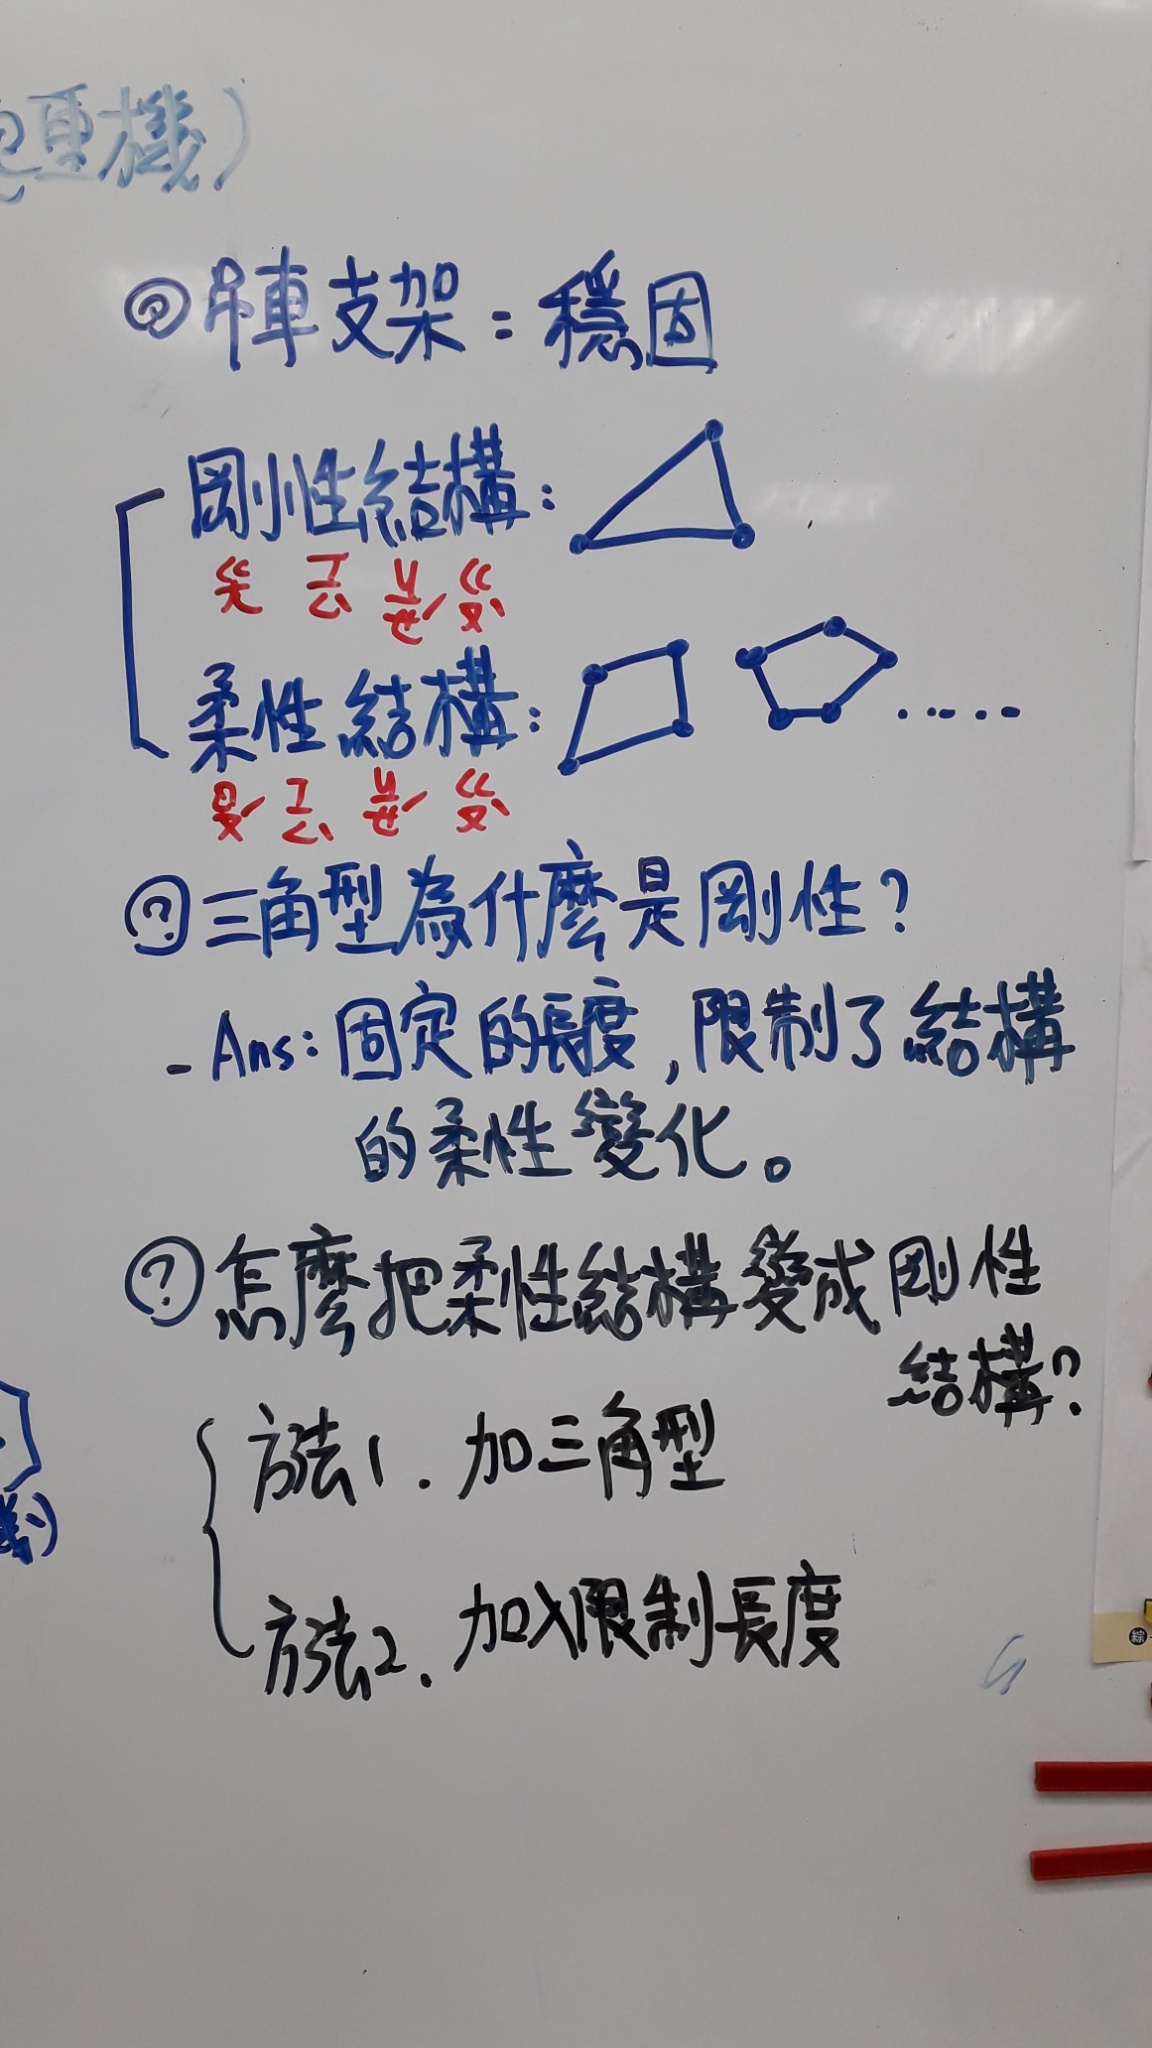 重機)
吊車支架:穩固
剛性結構:
ㄍㄤ ㄒㄧㄥˋ ㄐㄧㄝˊ ㄍㄡˋ
柔性結構:
ㄖㄡˊ ㄒㄧㄥˋ ㄐㄧㄝˊ ㄍㄡˋ
.....
? 三角型為什麼是剛性?
- Ans: 固定的長度,限制了結構
的柔性變化。
? 怎麼把柔性結構變成剛性
結構?
方法1. 加三角型
方法2. 加入限制長度
綜